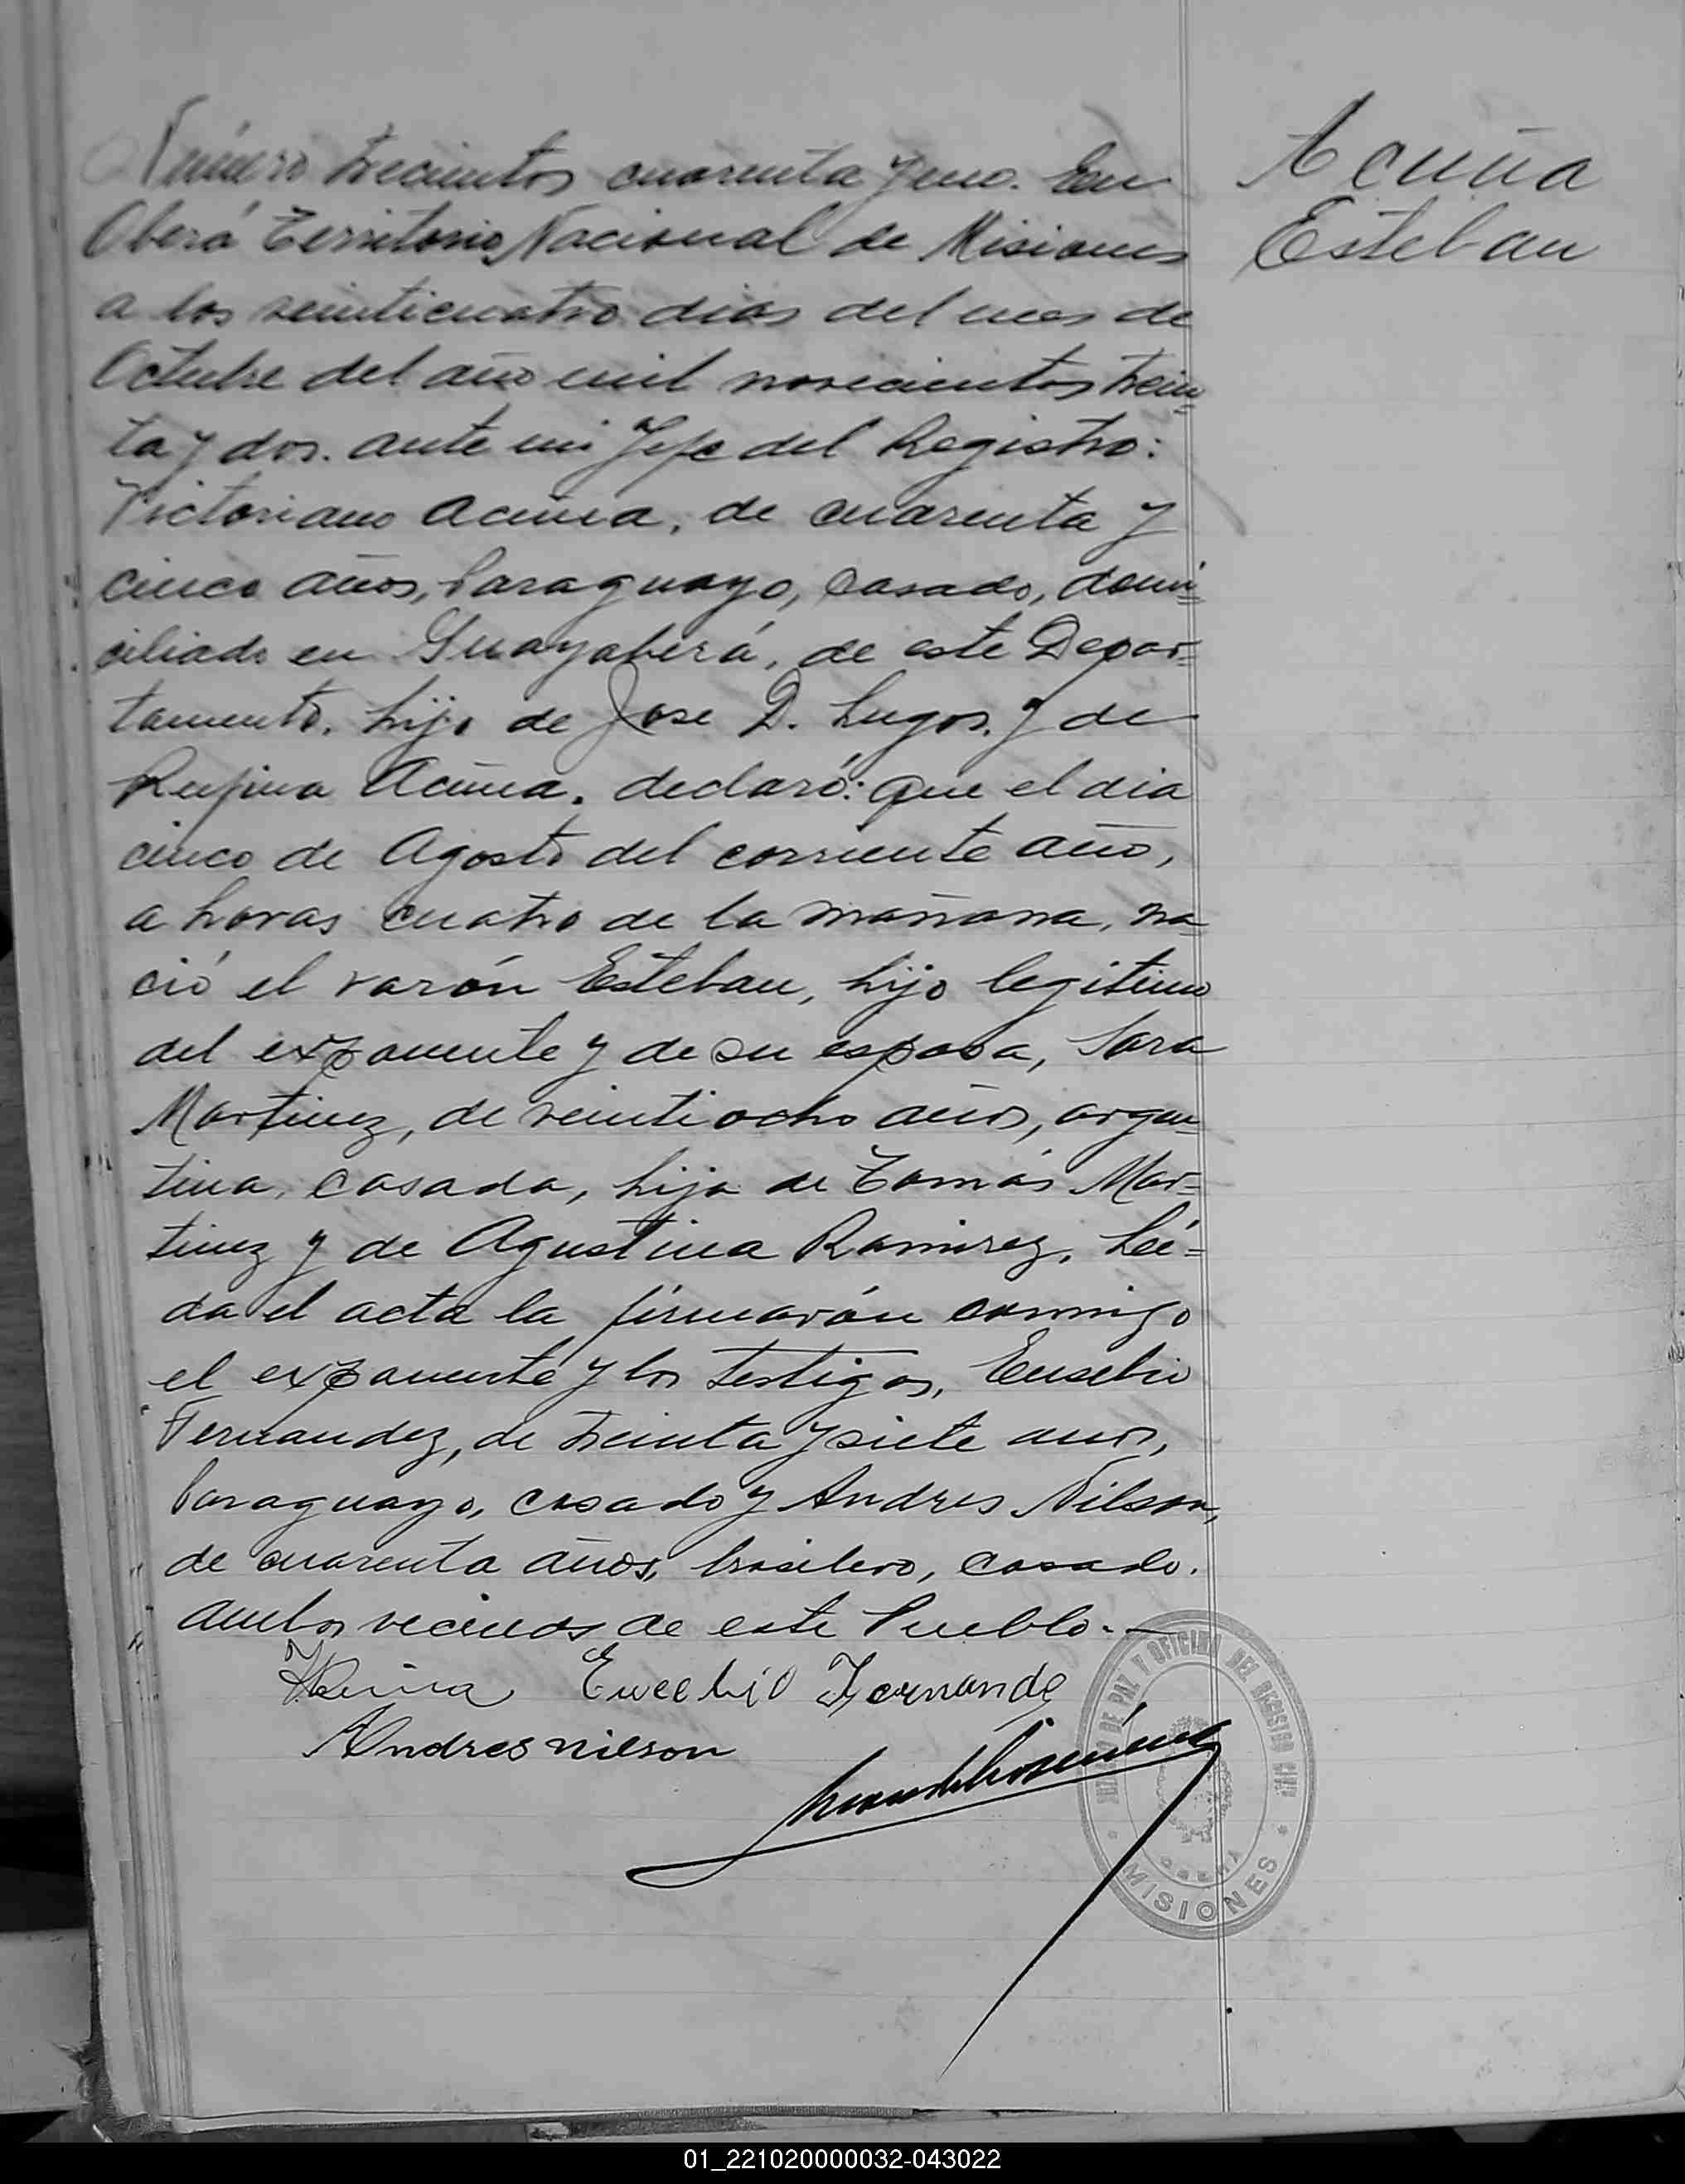 Número trecientos cuarenta y uno. En
Acuña
Oberá Territorio Nacional de Misiones
Esteban
a los veinticuatro dias del mes de
Octubre del año mil novecientos trein=
ta y dos. ante mi Jefe del Registro:
Victoriano Acuña, de cuarenta y
cinco años, Paraguayo, casado, domi=
ciliado en Guayaberá, de este Depar=
tamento. hijo de Jose D. Lugos. y de
Rufina Acuña. declaró: que el dia
cinco de Agosto del corriente año,
a horas cuatro de la mañana, na=
ció el varón Esteban, hijo legitimo
del exponente y de su esposa, Sara
Martinez, de veintiocho años, argen=
tina, casada, hija de Tomás Mar=
tinez y de Agustina Ramirez. Leí=
da el acta la firmarón conmigo
el exponente y los testigos, Eusebio
Fernandez, de treinta y siete anos,
Paraguayo, casado y Andres Nilson,
de cuarenta años, brasilero, casado.
Ambos vecinos de este Pueblo.-
Eucebio Fernande
Andres nilson
JUZGADO DE PAZ Y OFICINA DEL REGISTRO CIVIL
OBERÁ
MISIONES
01_221020000032-043022